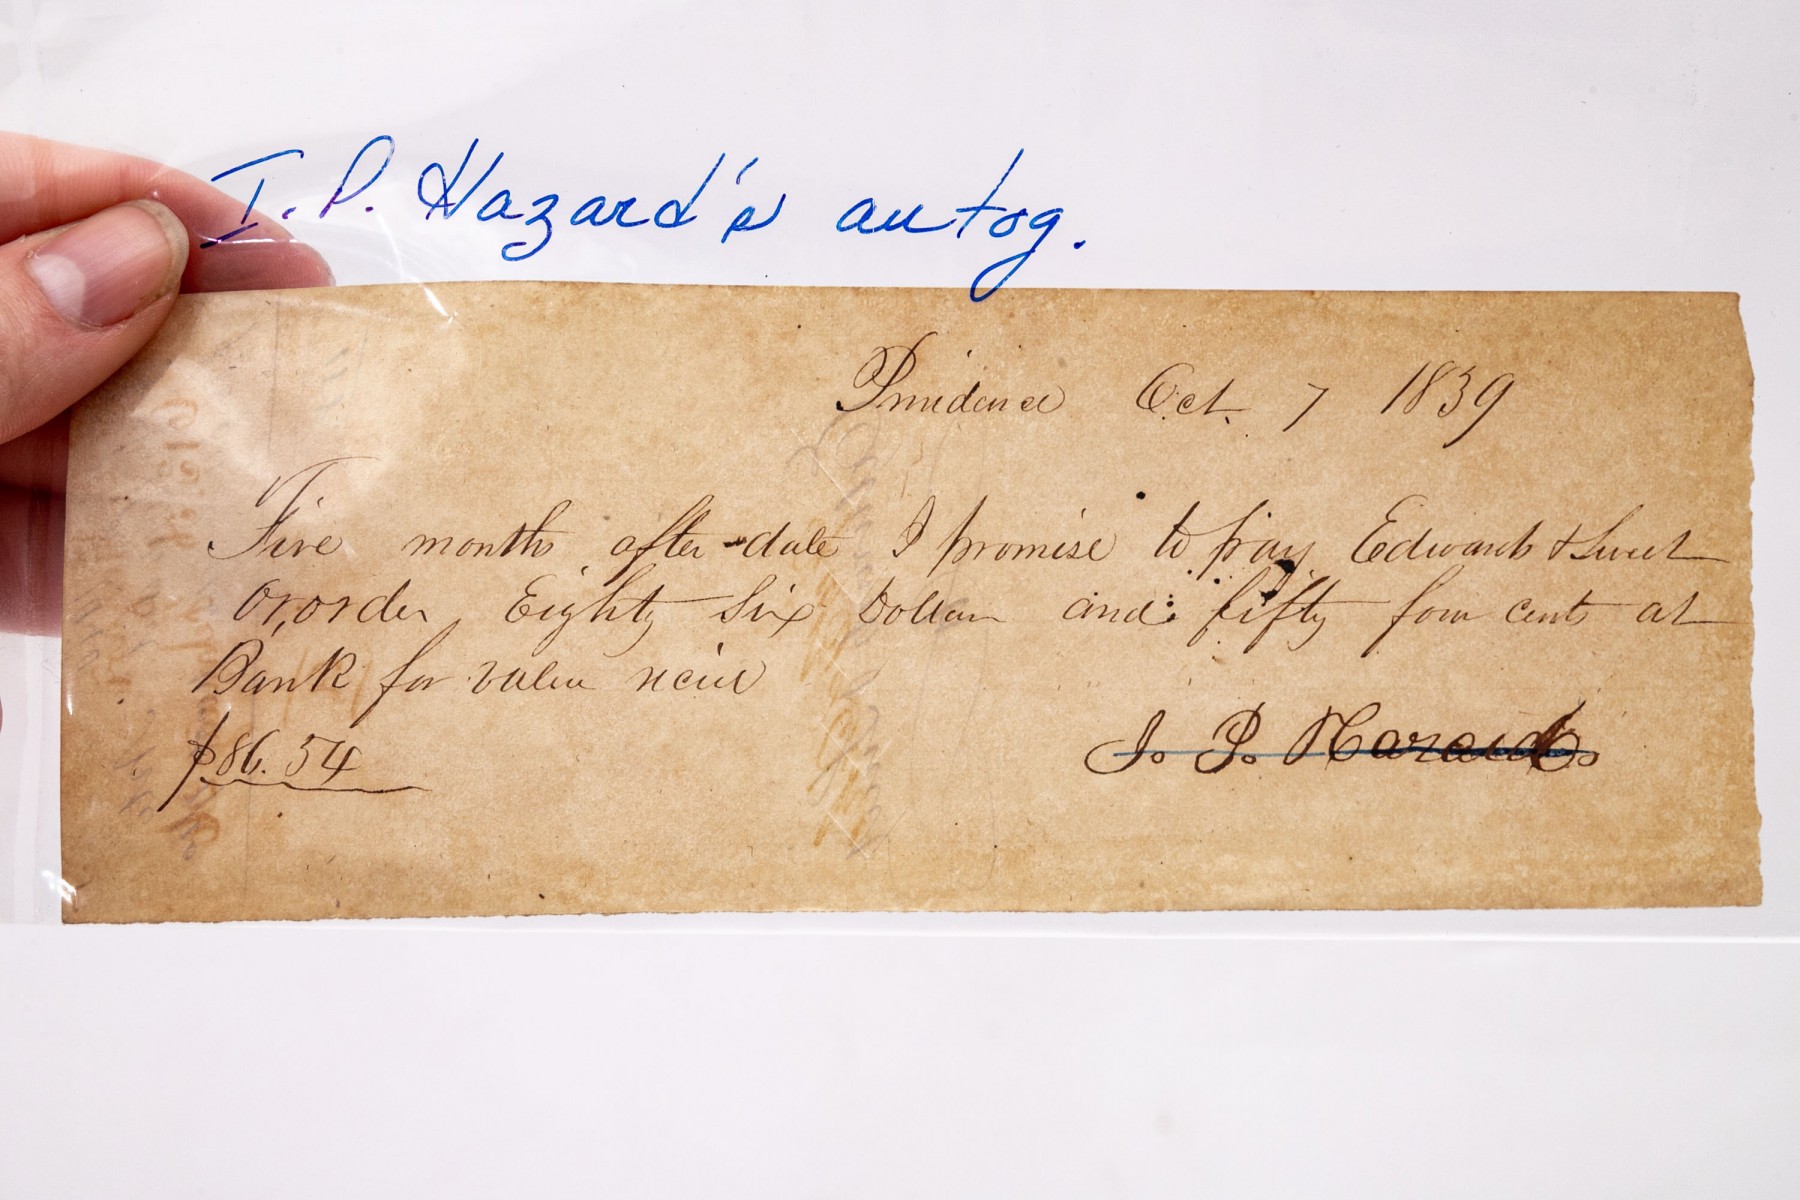 I. P. Hazard's autog.
Providence Oct. 7 1839
Five months after date I promise to pay Edwards & Sweet
or order Eighty Six Dollars and fifty four cents at
Bank for value recied
$86.54
I. P. Hazard